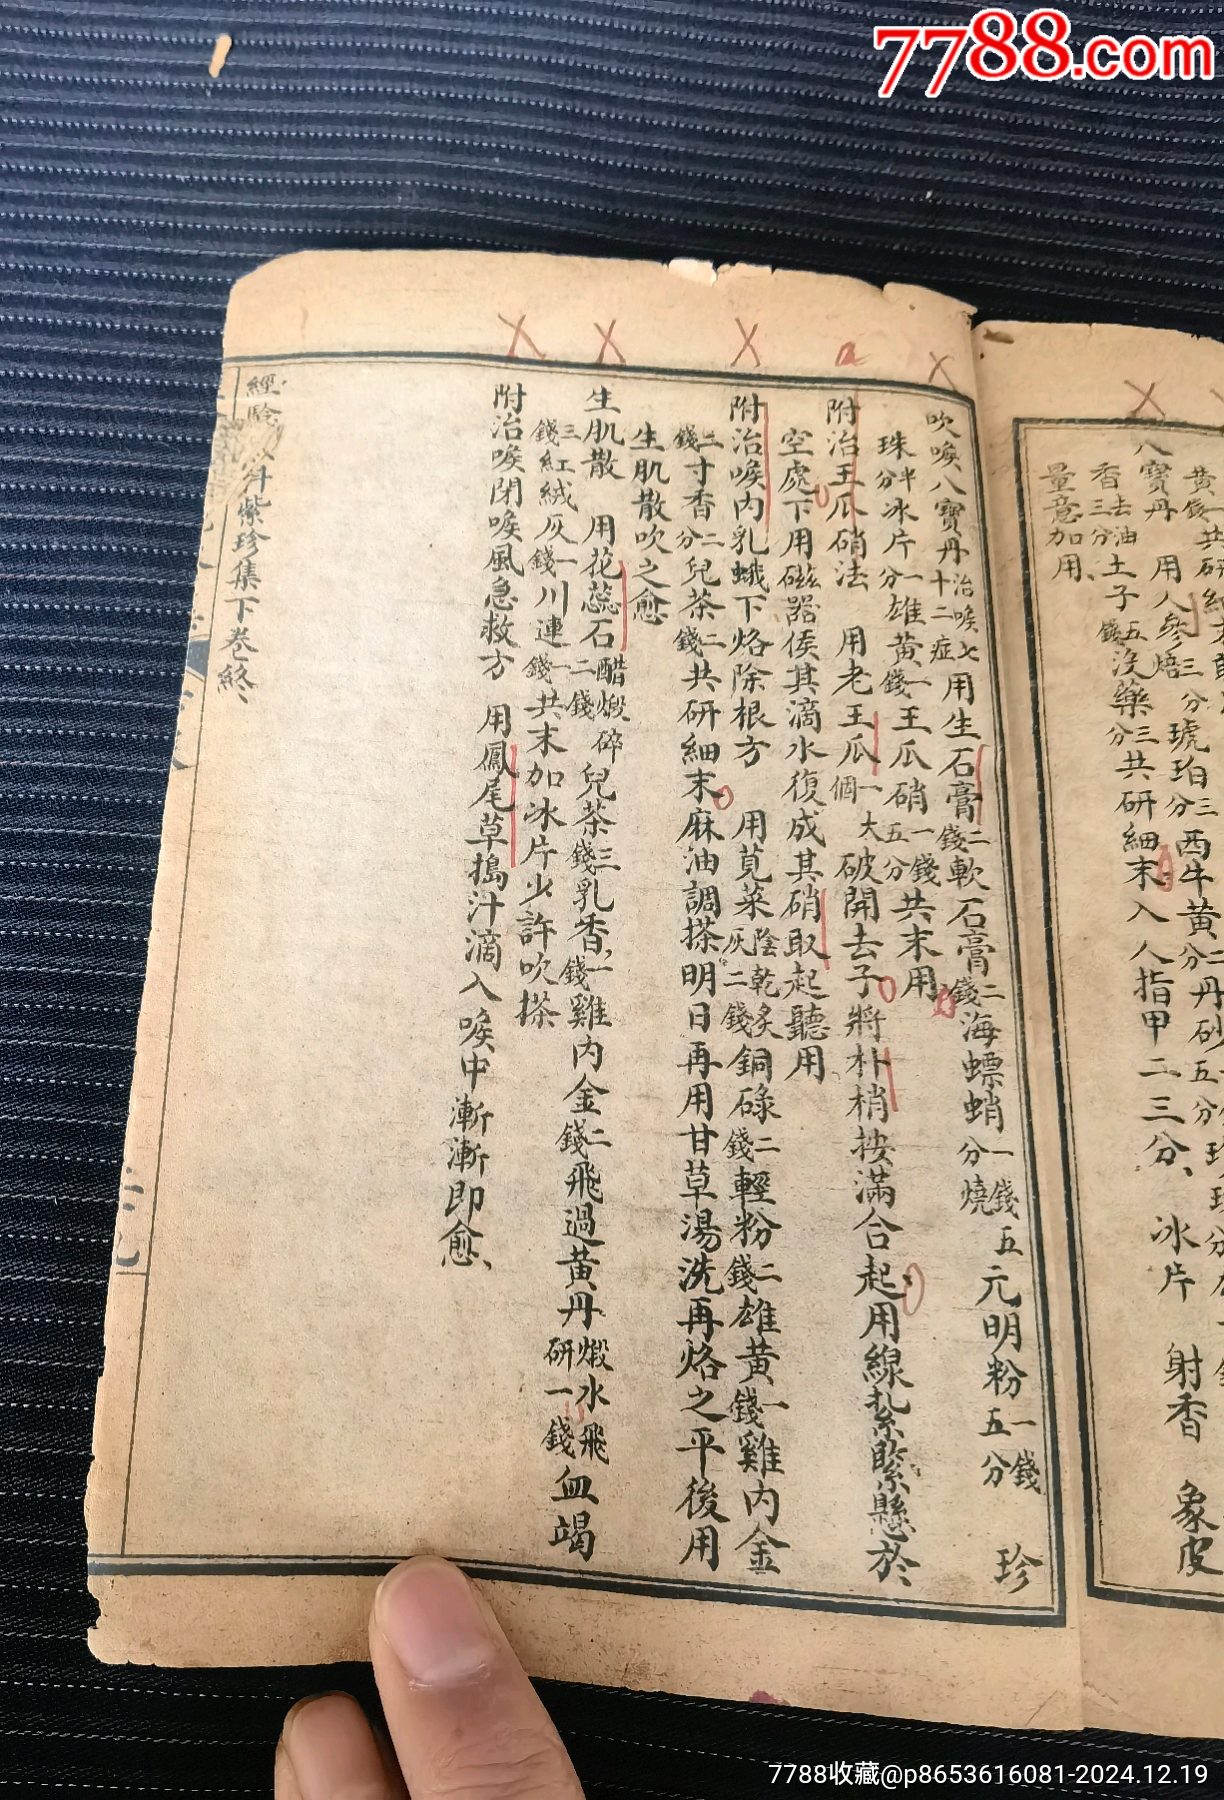 7788.com
黃錢一共研
八寶丹 用人參焙三分琥珀三分西牛黃二分丹砂五分
香去油三分土子五錢沒藥三分共研細末入人指甲二三分、冰片 射香 象皮
量意加用
吹喉八寶丹治喉七十二症用生石膏二錢軟石膏二錢海螵蛸一錢分燒五元明粉一錢五分 珍
珠半分冰片一分雄黃一錢王瓜硝一錢五分共末用
附治王瓜硝法 用老王瓜一個大破開去子將朴梢按滿合起用線紮緊懸於
空處下用磁器俟其滴水復成其硝取起聽用
附治喉內乳蛾下烙除根方 用莧菜陰乾炙灰二錢銅碌二錢輕粉二錢雄黃一錢雞內金
二錢寸香二分兒茶二錢共研細末麻油調搽明日再用甘草湯洗再烙之平後用
生肌散吹之愈
生肌散 用花蕊石醋煅碎二錢兒茶三錢乳香一錢雞內金二錢飛過黃丹煅水飛研一錢血竭
三錢紅絨灰一錢川連一錢共末加冰片少許吹搽
附治喉閉喉風急救方 用鳳尾草搗汁滴入喉中漸漸即愈、
經驗 紫珍集下卷終
7788收藏@p8653616081-2024.12.19